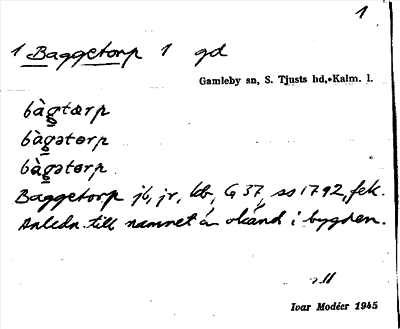 1
1 Baggetorp 1 gd
Gamleby sn, S. Tjusts hd, Kalm. l.
bàgtærp
bàgətorp
bàgətorp
Baggetorp jb, jr, kb, G 37, ss 1792, fek.
Anledn. till namnet är okänd i bygden.
Ivar Modéer 1945